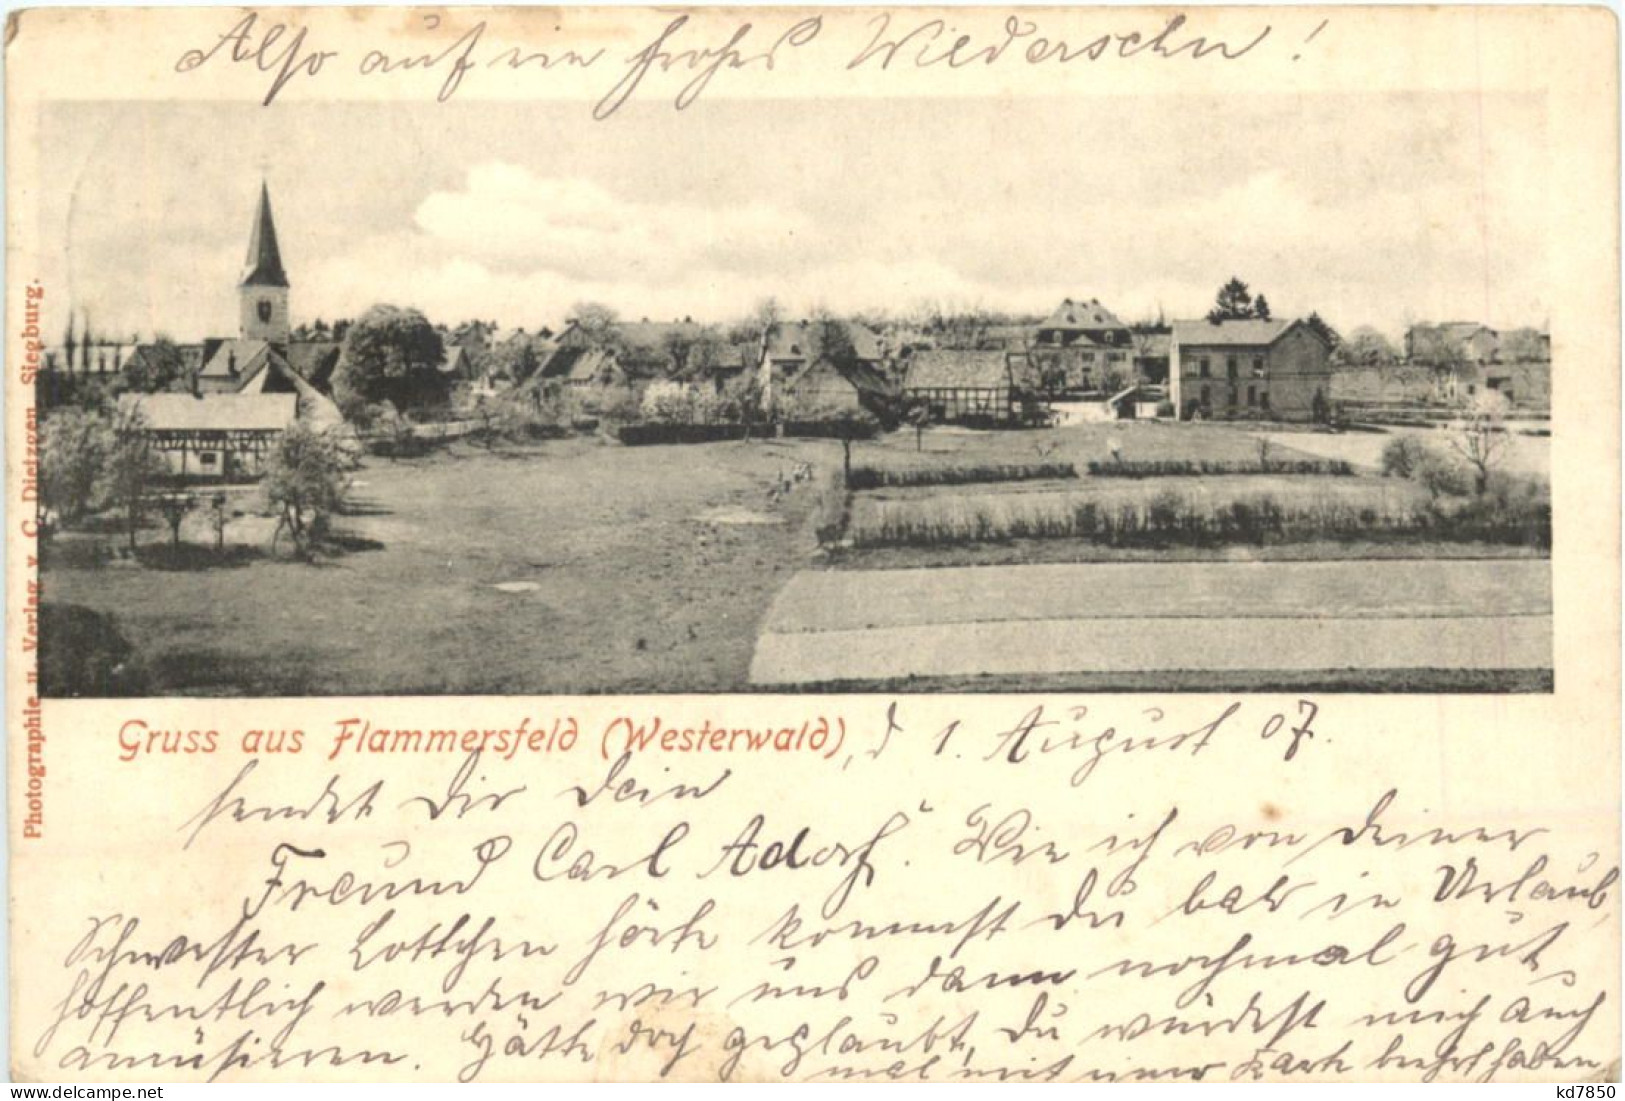 Also auf ein frohes Wiedersehn!
Photographie u. Verlag v. C. Dietzgen Siegburg.
Gruss aus Flammersfeld (Westerwald), d 1. August 07.
sendet Dir Dein
Freund Carl Adorf. Wie ich von Deiner
Schwester Lottchen hörte kommst Du bald in Urlaub,
hoffentlich werden wir uns dann nochmal gut
amüsieren. Hätte doch geglaubt, Du würdest mich auch
mal mit einer Karte beehrt haben
delcampe.net
kd7850